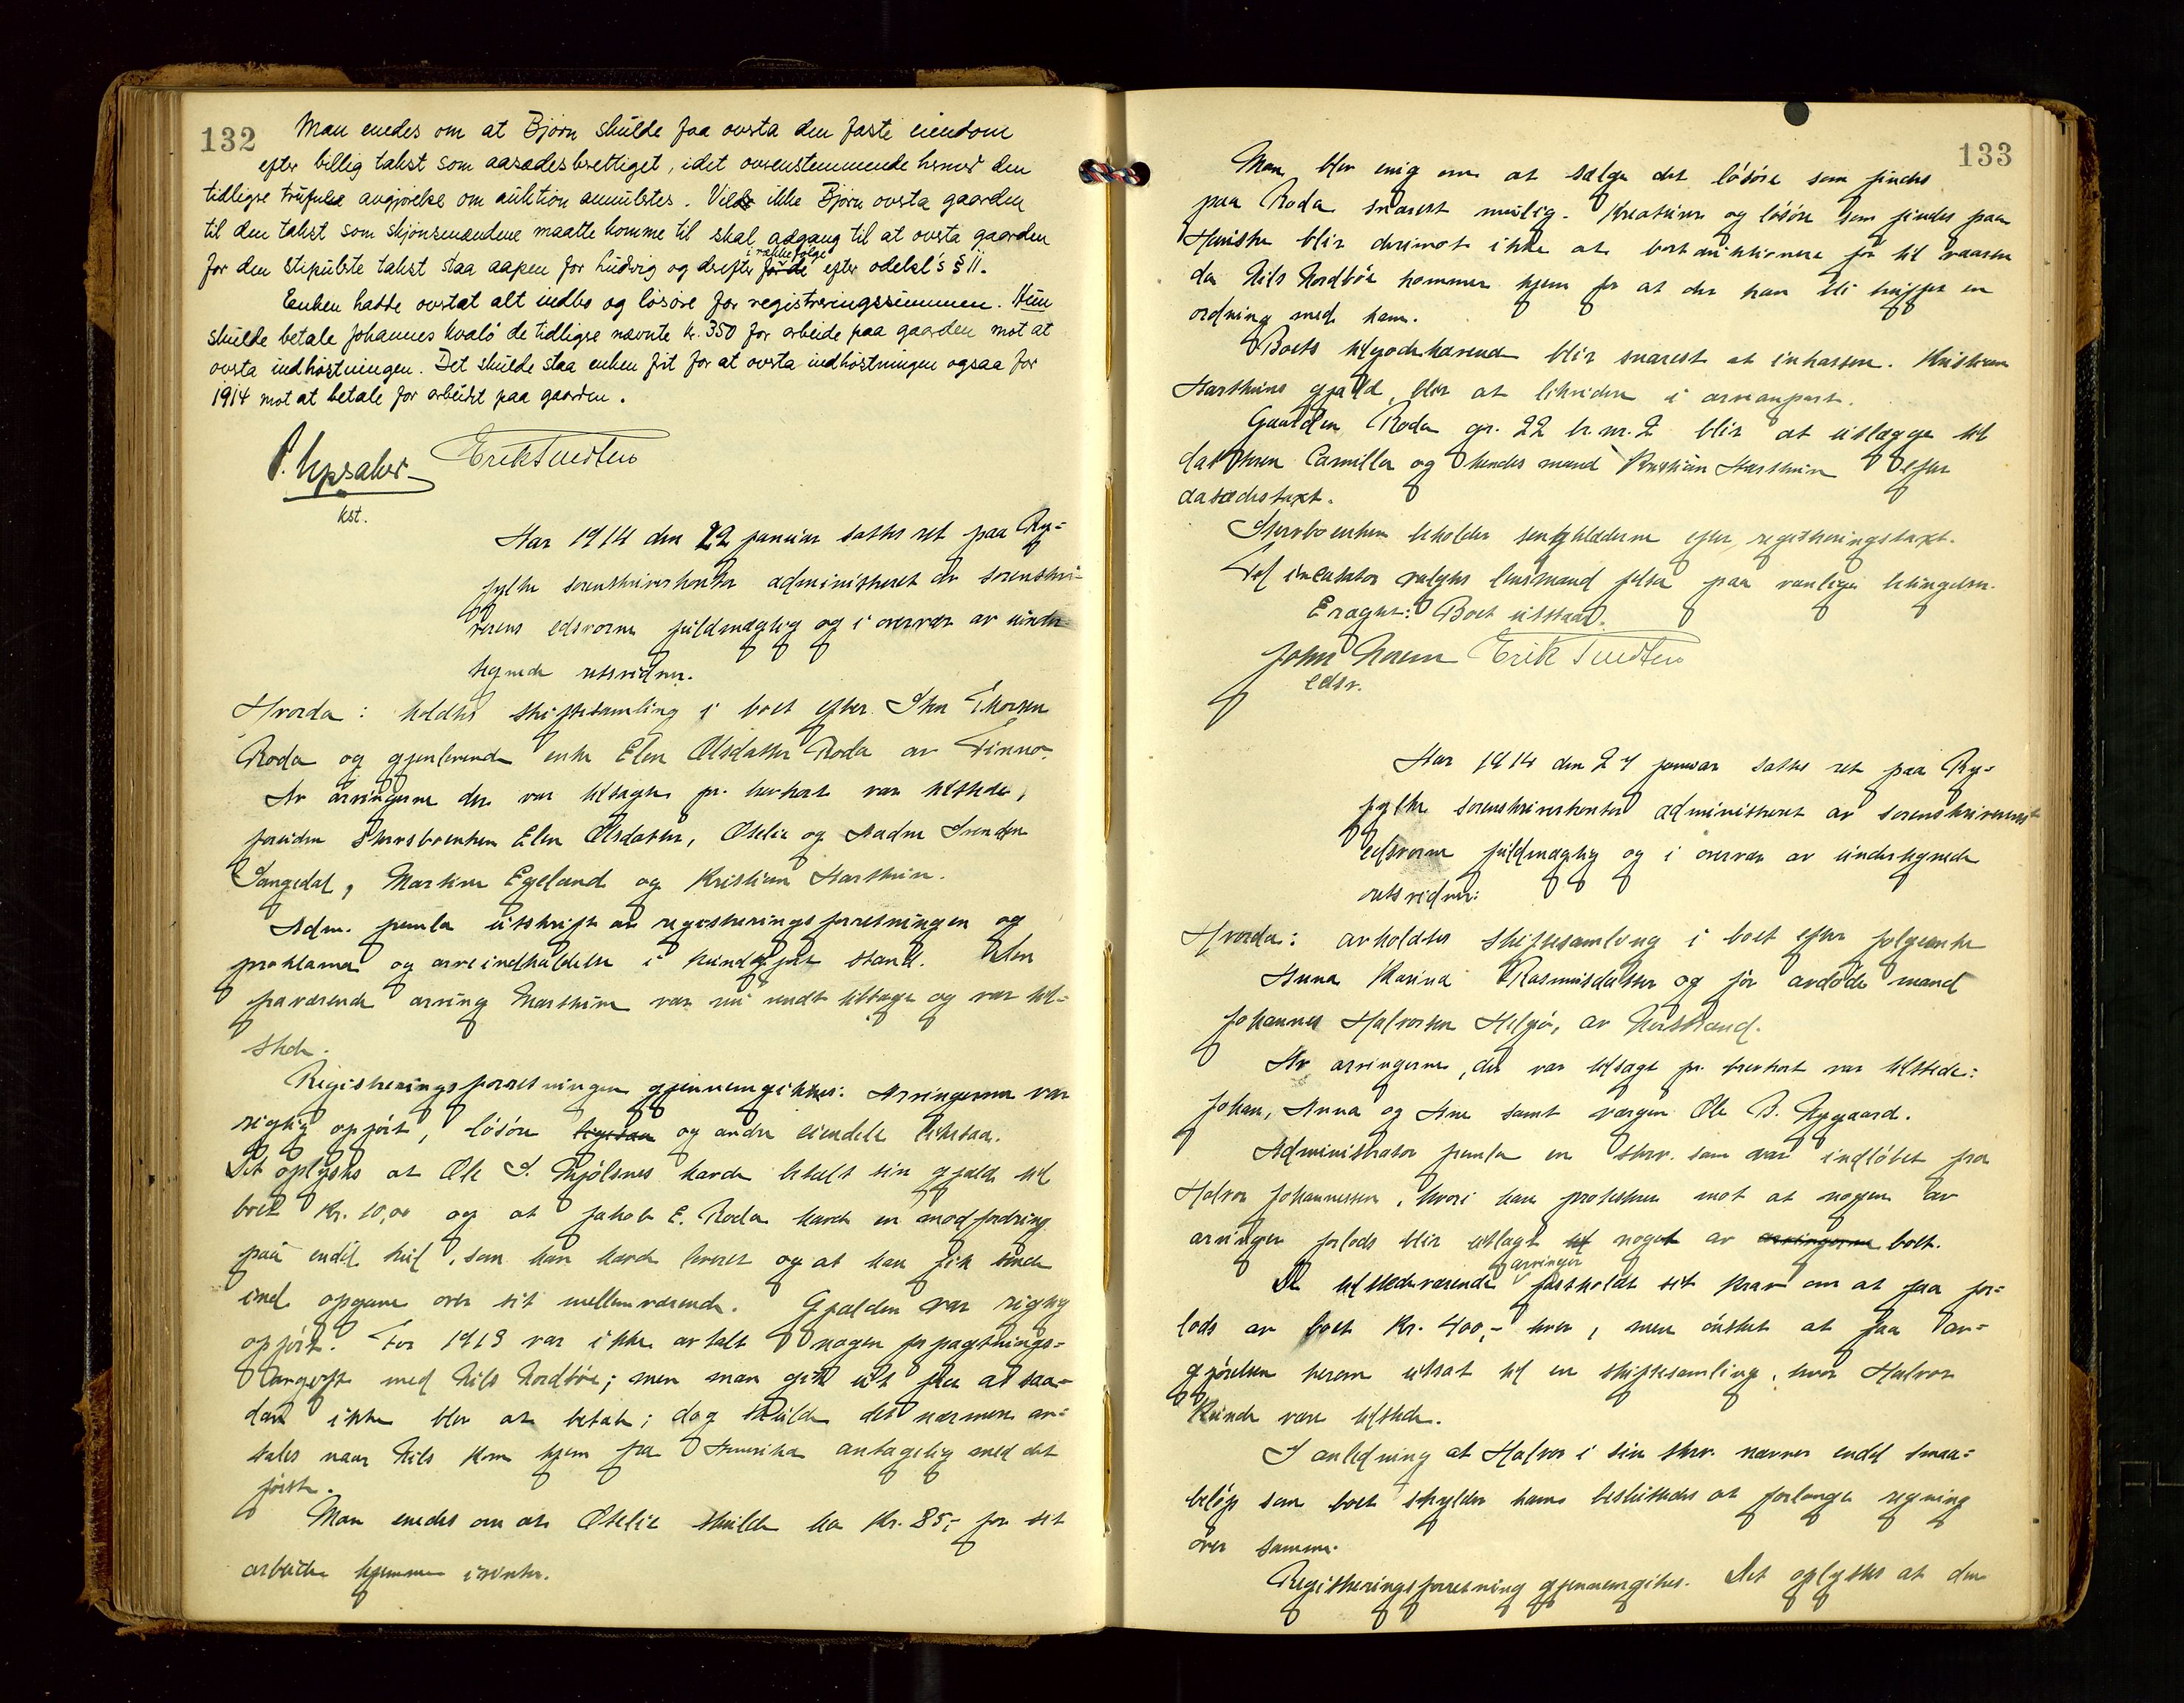 132
Man enedes om at Bjørn skulde faa overta den faste eiendom
efter billig takst som aasædesberettiget, idet overenstemmende hermed den
tidligre trufne avgjørelse om auktion annulertes. Vilde ikke Bjørn overta gaarden
til den takst som skjønsmændene maatte komme til skal adgang til at overta gaarden
i rækkefølge
for den stipulerte takst staa aapen for Ludvig og derefter for de efter odelsl's § 11.
Enken hadde overtat alt indbo og løsøre for registreringssummen. Hun
skulde betale Johannes Kvalø de tidligere nævnte kr. 350 for arbeide paa gaarden mot at
overta indhøstningen. Det skulde staa enken frit for at overta indhøstningen ogsaa for
1914 mot at betale for arbeidet paa gaarden.
Erik Tuedten
kst.
Aar 1914 den 22 januar sattes ret paa Ry=
fylke sorenskriverkontor administreret av sorenskri=
verens edsvorne fuldmægtig og i overvær av under=
tegnede retsvidner.
Hvorda: holdtes skiftesamling i boet efter Sten Thorsen
Roda og gjenlevende enke Elen Olsdatter Roda av Finnø.
Av arvingerne der var tilsagte pr. brevkort var tilstede,
foruten stervboenken Elen Olsdatter, Otelie og Aadne Svendsen
Sangedal, Martin Egeland og Kristian Harstrin.
Adm. fremla utskrift av registreringsforretningen og
proklama og arveindkaldelse i kundgjort stand. Den
fraværende arving Marthine var nu endt tilsagt og var til=
stede.
Registreringsforretningen gjennemgikkes: Arvingerne var
rigtig opført, løsøre ligesaa og andre eiendele likesaa.
Det oplystes at Ole S. Kjølsnes havde betalt sin gjæld til
boet Kr. 10,00 og at Jakob E. Roda havde en modfordring
paa endel hud, som han havde leveret og at han fik sende
ind opgave over sit mellemværende. Gjælden var rigtig
opført. For 1913 var ikke avtalt nogen forpagtnings=
avgift med Nils Nordbøe; men man gik ut fra at saa=
dan ikke blev at betale; dog skulde det nærmere av=
tales naar Nils kom hjem fra Amerika antagelig med det
første.
Man enedes om at Otelie skulde ha Kr. 85,- for sit
arbeide hjemme ivinter.
133
Man blev enig om at sælge det løsøre som findes
paa Roda snarest mulig. Kreaturer og løsøre som findes paa
blir derimot ikke at bortauktionere før til vaaren
da Nils Nordbøe kommer hjem for at der kan bli truffet en
ordning med ham.
Boets tilgodehavende blir snarest at inkassere. Kristian
gjæld blir at likvidere i arveanpart.
Gaarden Roda gr. 22 br.nr. 2 blir at utlægge til
datteren Camilla og hendes mand Kristian efter
aasædestaxt.
Stervboenken beholder sengklæderne efter registreringstaxt.
Til incassator valgtes lensmand paa vanlige betingelser.
Eragtet: Boet utstaar.
John Norem Erik Tuedten
edsv.
Aar 1914 den 27 januar sattes ret paa Ry=
fylke sorenskriverkontor administreret av sorenskriverens
edsvorne fuldmægtig og i overvær av undertegnede
retsvidner:
Hvorda: avholdtes skiftesamling i boet efter følgeenke
Anna Karina Rasmusdatter og før avdøde mand
Johannes Halvorsen Helgø, av Nerstrand.
Av arvingerne, der var tilsagt pr. brevkort var tilstede:
Johan, Anna og Ane samt værgen Ole B. Nygaard.
Administrator fremla en skr. som var indløbet fra
Halvor Johannessen, hvori han protesterer mot at nogen av
arvinger forlods blir utlagt til noget av arvingerne boet.
arvinger
De tilstedeværende fastholdt sit krav om at faa for=
lods av boet Kr. 400,- hver, men ønsket at faa av=
gjørelsen herom utsat til en skiftesamling, hvor Halvor
kunde være tilstede.
I anledning at Halvor i sin skr. nævner endel smaa=
beløp som boet skylder ham besluttedes at forlange regning
over samme.
Registreringsforretning gjennemgikes. Det oplystes at den